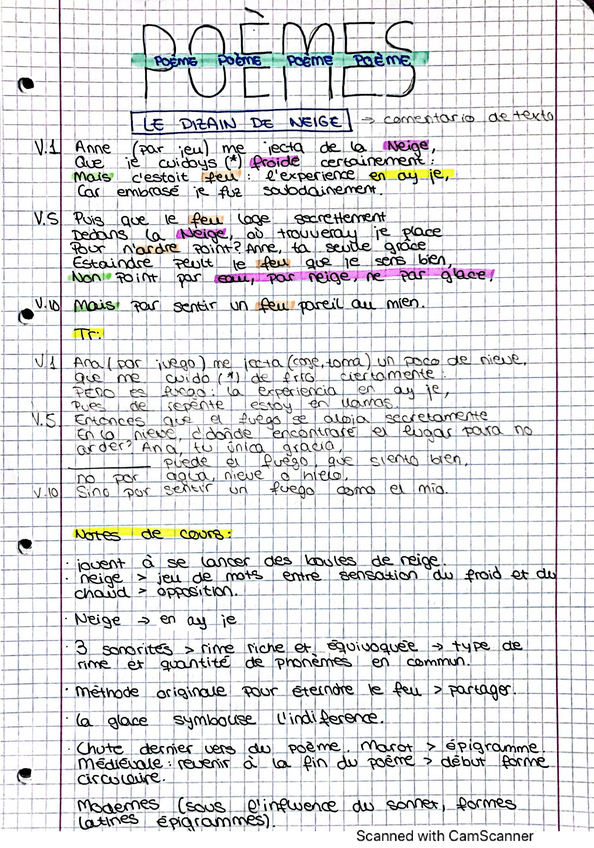 POÈMES
POÈME POÈME POÈME POÈME
LE DIZAIN DE NEIGE → comentario de texto
V.1 Anne (par jeu) me jecta de la Neige,
Que je cuidoys (*) froide certainement:
Mais c'estoit feu, l'experience en ay je,
Car embrasé je fuz soubdainement.
V.5 Puis que le feu loge secrettement
Dedans la Neige, où trouveray je place
Pour n'ardre point? Anne, ta seule grâce
Estaindre peult le feu que je sens bien,
Non point par eau, par neige, ne par glace,
V.10 Mais par sentir un feu pareil au mien.
Tr:
V.1 Ana (por juego) me jecta (coge, toma) un poco de nieve,
que me cuido (*) de frío ciertamente:
Pero es fuego: la experiencia en ay je,
Pues de repente estoy en llamas.
V.5 Entonces que el fuego se aloja secretamente
En la nieve, ¿dónde encontraré el lugar para no
arder? Ana, tu única gracia,
puede el fuego, que siento bien,
no por agua, nieve o hielo,
V.10 Sino por sentir un fuego como el mío.
Notes de cours:
· jouent à se lancer des boules de neige.
· neige > jeu de mots entre sensation du froid et du
chaud > opposition.
· Neige → en ay je
· 3 sonorités > rime riche et équivoquée → type de
rime et quantité de phonèmes en commun.
· Méthode originale pour éteindre le feu > partager.
· La glace symbolise l'indiference.
· Chute dernier vers du poème. Marot > épigramme.
Médiévale: revenir à la fin du poème > début forme
circulaire.
Modernes (sous l'influence du sonnet, formes
latines épigrammes).
Scanned with CamScanner